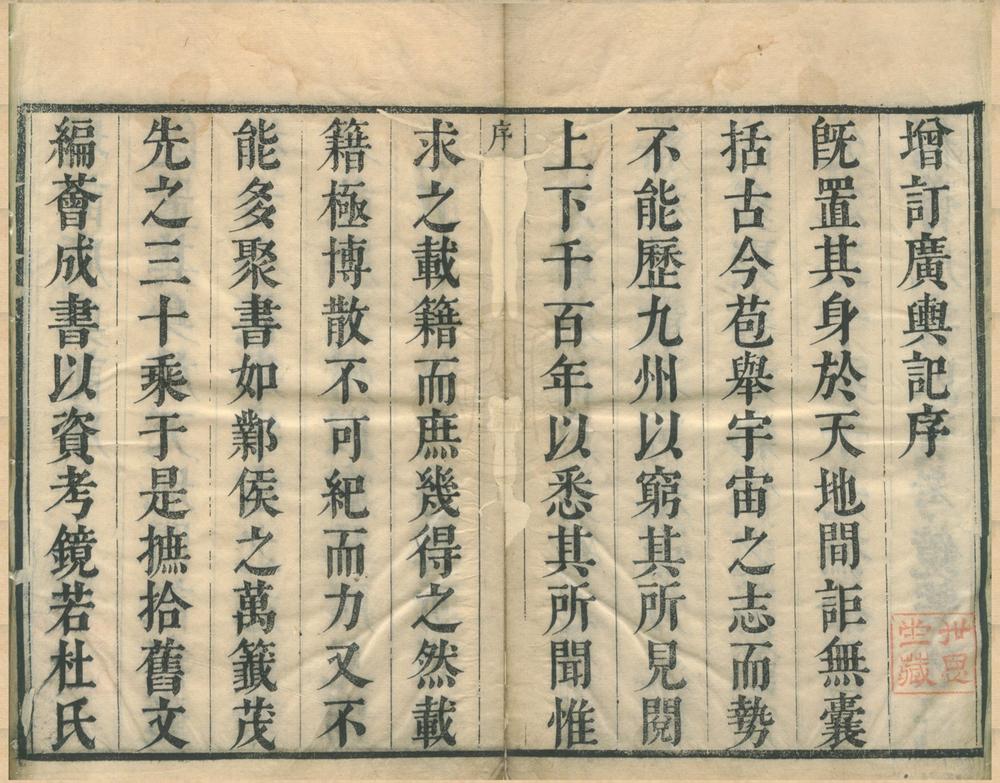 增訂廣輿記序
旣置其身於天地間詎無囊
括古今苞舉宇宙之志而勢
不能歷九州以窮其所見閱
上下千百年以悉其所聞惟
序
求之載籍而庶幾得之然載
籍極博散不可紀而力又不
能多聚書如鄴侯之萬籖茂
先之三十乘于是摭拾舊文
編薈成書以資考鏡若杜氏
世思
堂藏